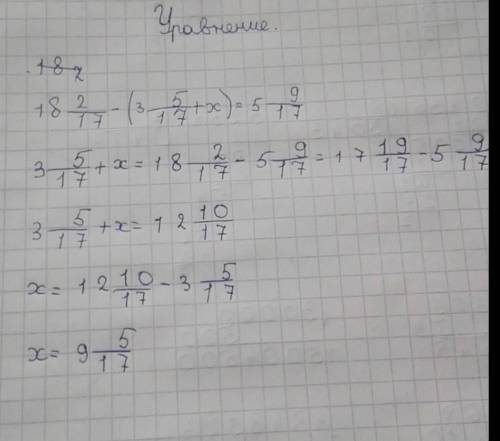 Уравнение.
18 2
18 2/17 - (3 5/17 + x) = 5 9/17
3 5/17 + x = 18 2/17 - 5 9/17 = 17 19/17 - 5 9/17
3 5/17 + x = 12 10/17
x = 12 10/17 - 3 5/17
x = 9 5/17